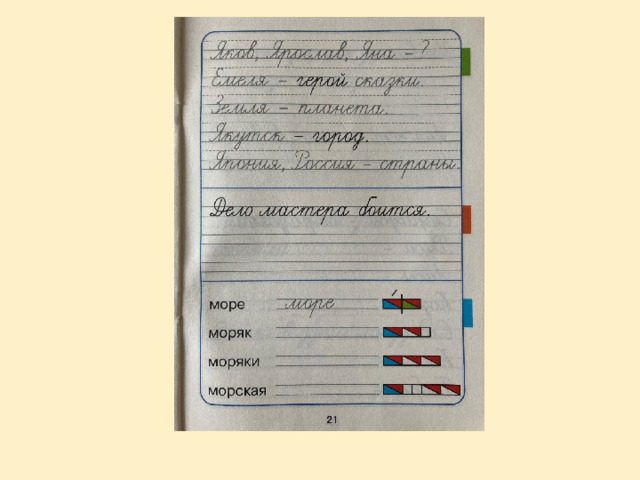 Яков, Ярослав, Яна – ?
Емеля – герой сказки.
Земля – планета.
Якутск – город.
Япония, Россия – страны.
Дело мастера боится.
море море
моряк
моряки
морская
21